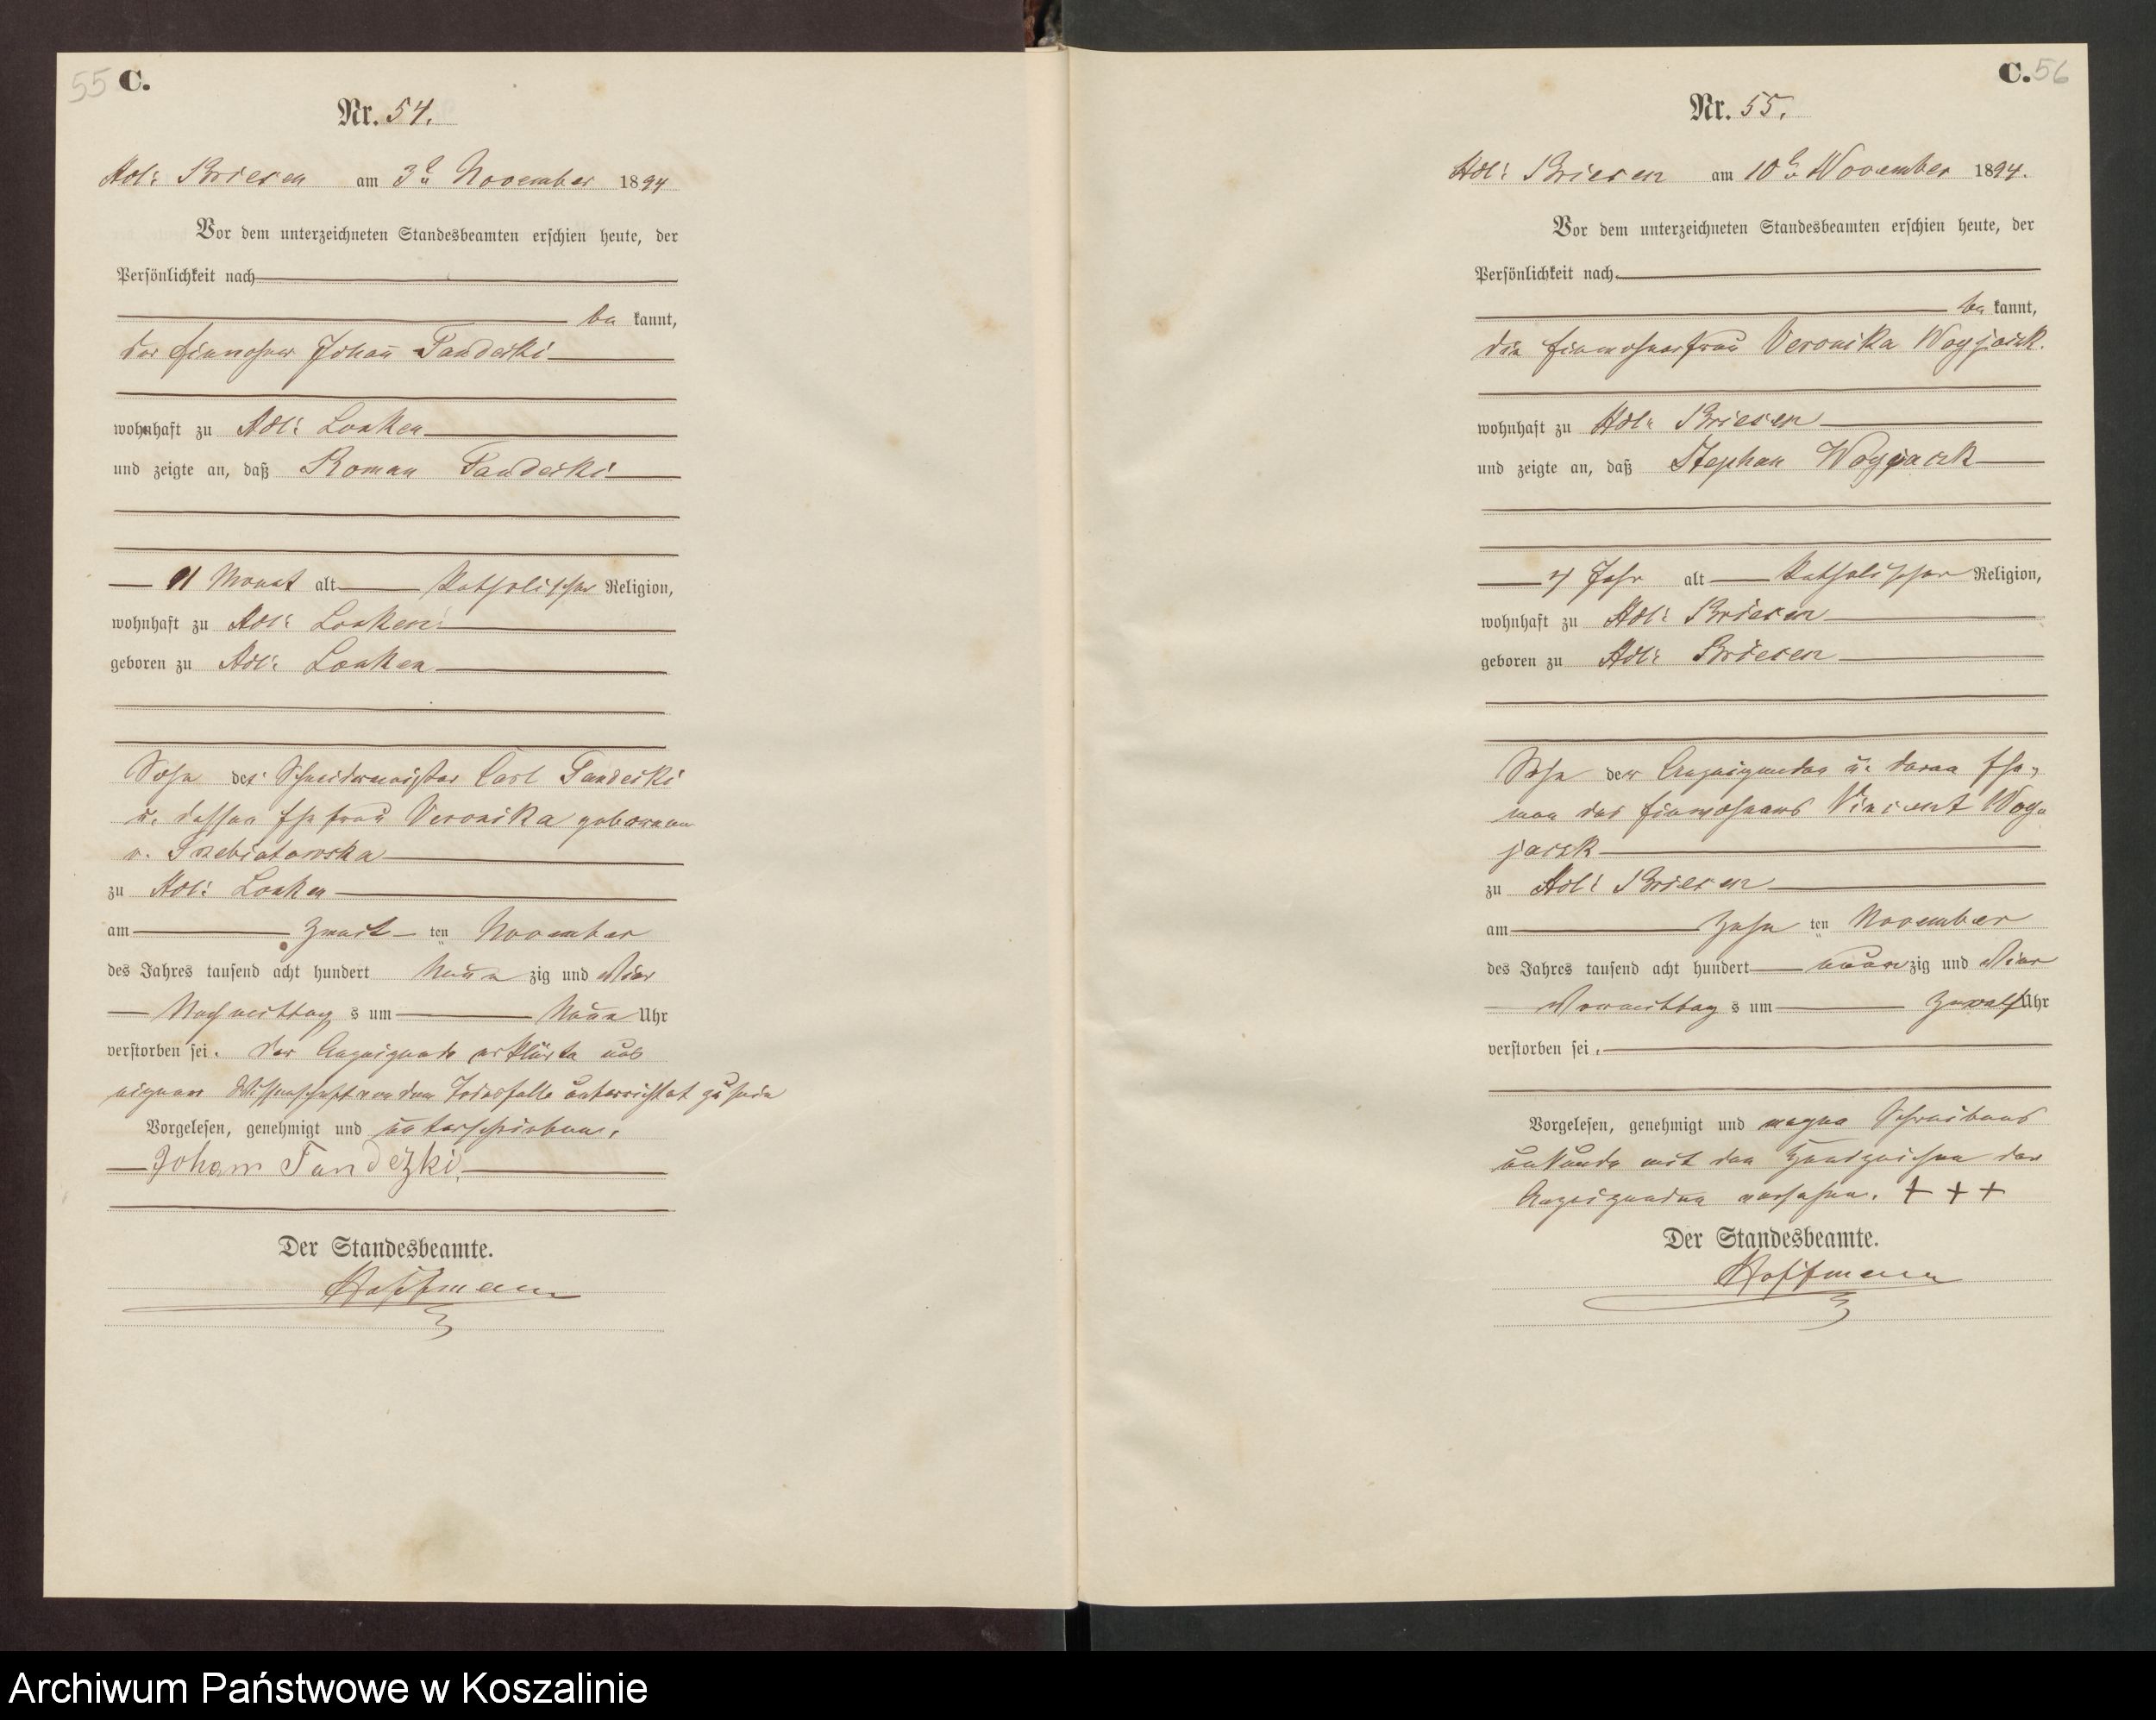 55 C.
Nr. 54.
Adl: Briesen am 3ten November 1894
Vor dem unterzeichneten Standesbeamten erschien heute, der
Persönlichkeit nach
be kannt,
der Einwohner Johann Tandecki
wohnhaft zu Adl: Lonken
und zeigte an, daß Roman Tandecki
Monat alt Katholischer Religion,
wohnhaft zu Adl: Lonken
geboren zu Adl: Lonken
Sohn des Schneidermeister Carl Tandecki
u. dessen Ehefrau Veronika geborenen
v. Trebiatowska
zu Adl: Lonken
am zweit ten November
des Jahres tausend acht hundert Neun zig und Vier
Nachmittag s um Neun Uhr
verstorben sei. Der Anzeigende erklärte aus
eigener Wissenschaft von dem Todesfalle unterrichtet zu sein
Vorgelesen, genehmigt und unterschrieben.
Johann Tandezki
Der Standesbeamte.
Hoffmann
C. 56
Nr. 55.
Adl: Briesen am 10ten November 1894.
Vor dem unterzeichneten Standesbeamten erschien heute, der
Persönlichkeit nach
be kannt,
die Einwohnerfrau Veronika Woyjack.
wohnhaft zu Adl: Briesen
und zeigte an, daß Stephan
4 Jahr alt Katholischer Religion,
wohnhaft zu Adl: Briesen
geboren zu Adl: Briesen
Sohn der Anzeigenden u. deren Ehe-
man des Einwohners Vincent Woy-
zu Adl: Briesen
am Zehn ten November
des Jahres tausend acht hundert neun zig und Vier
Vormittag s um Zwoelf Uhr
verstorben sei.
Vorgelesen, genehmigt und wegen Schreibens
unkunde mit den Handzeichen der
Anzeigenden versehen. + + +
Der Standesbeamte.
Hoffmann
Archiwum Państwowe w Koszalinie